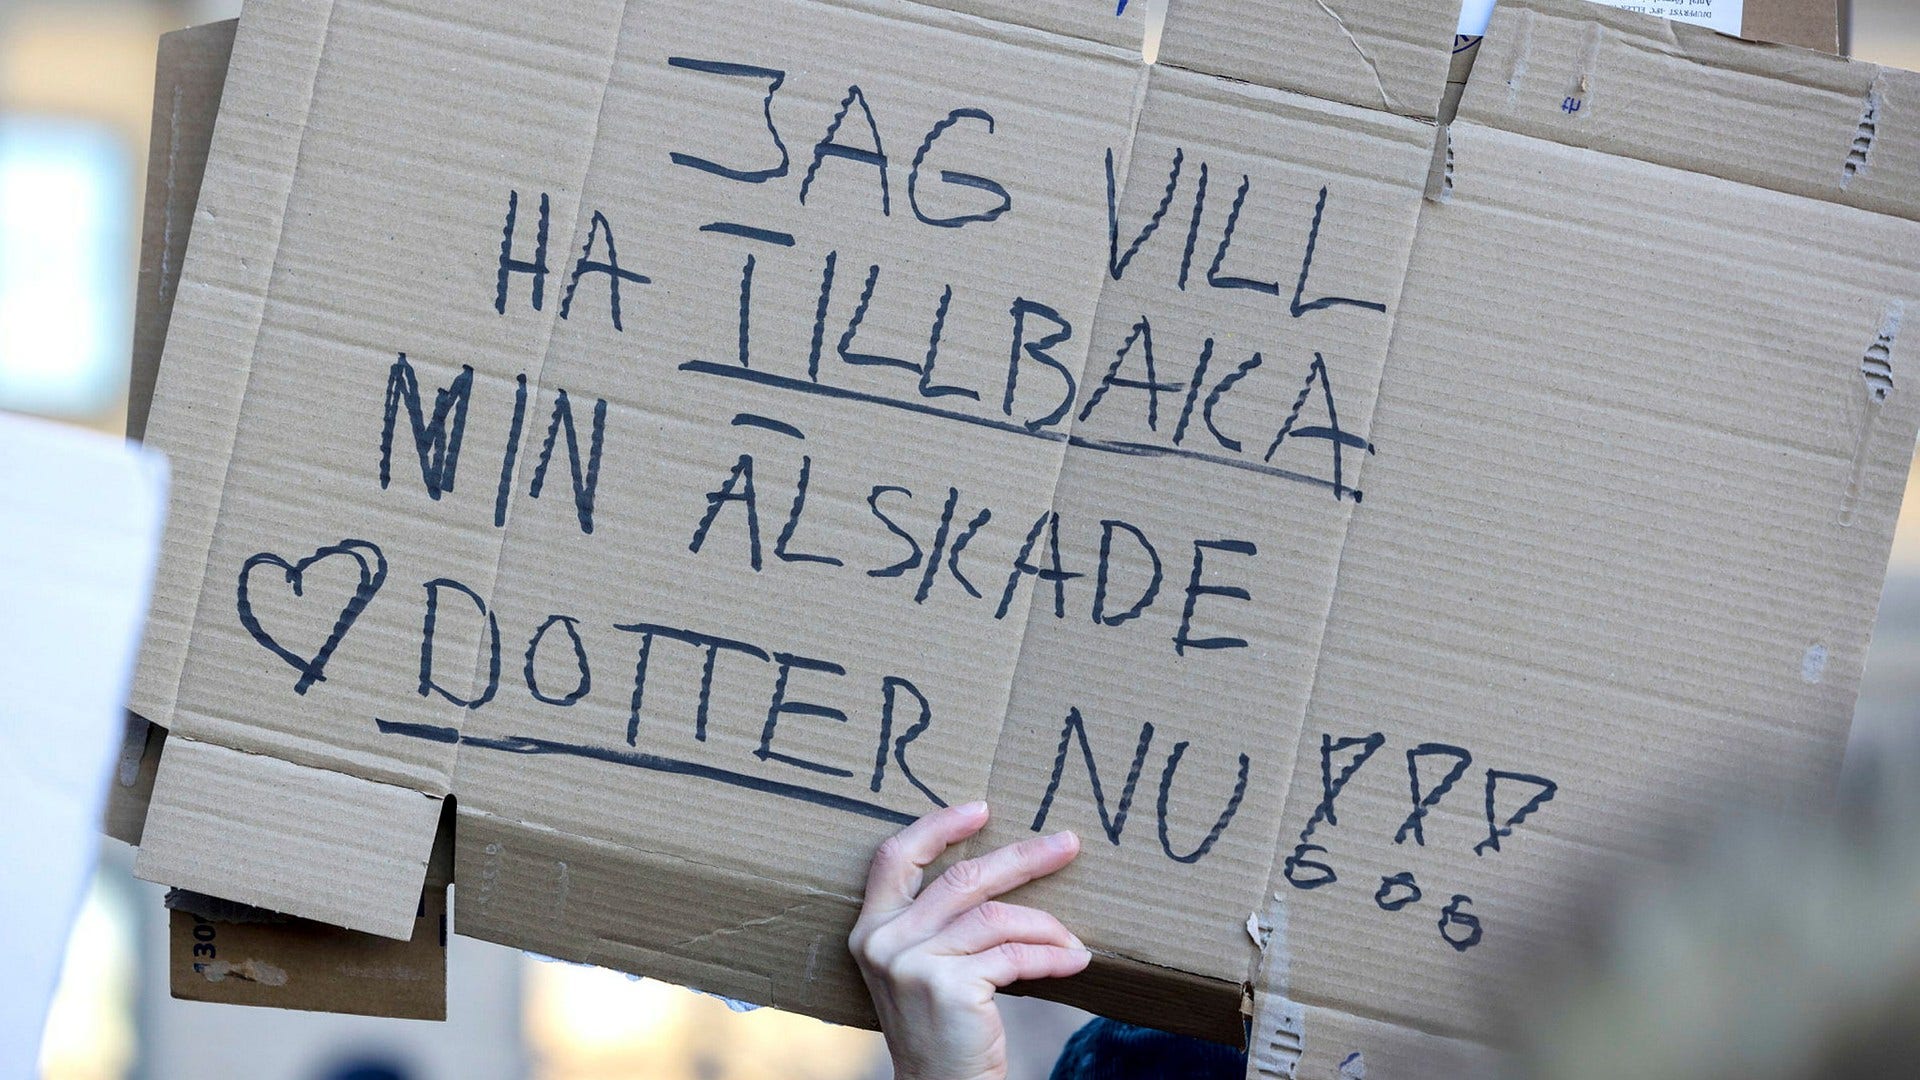 JAG VILL
HA TILLBAKA
MIN ÄLSKADE
♡ DOTTER NU!!!
130